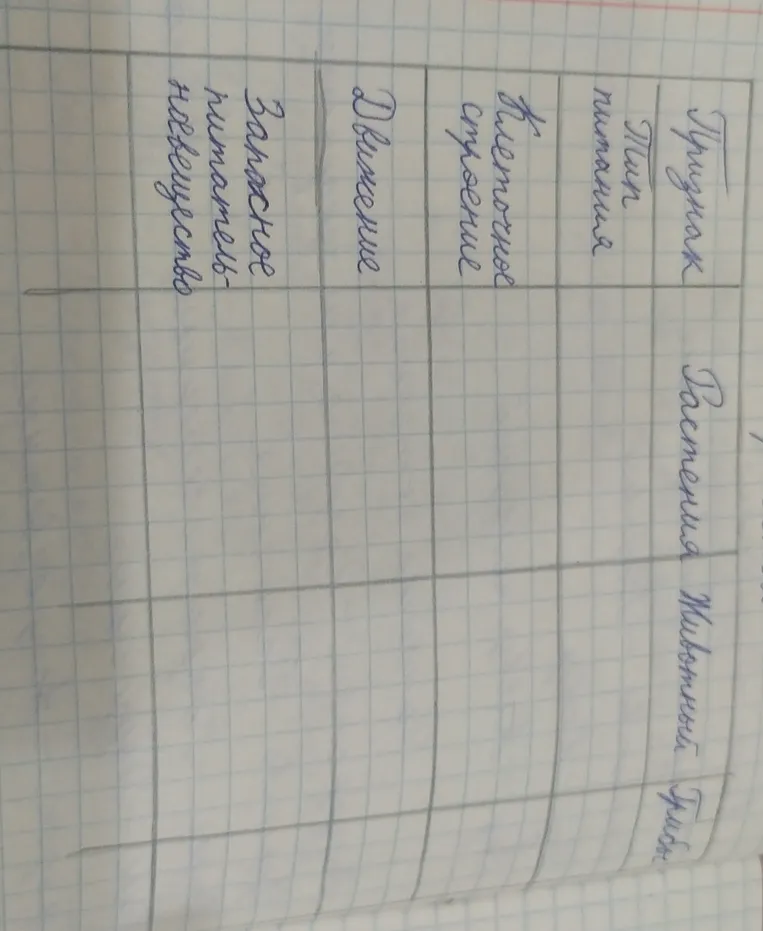 Признак Растения Животный Грибы
Тип
питания
Клеточное
строение
Движение
Запасное
питатель-
ноевещество